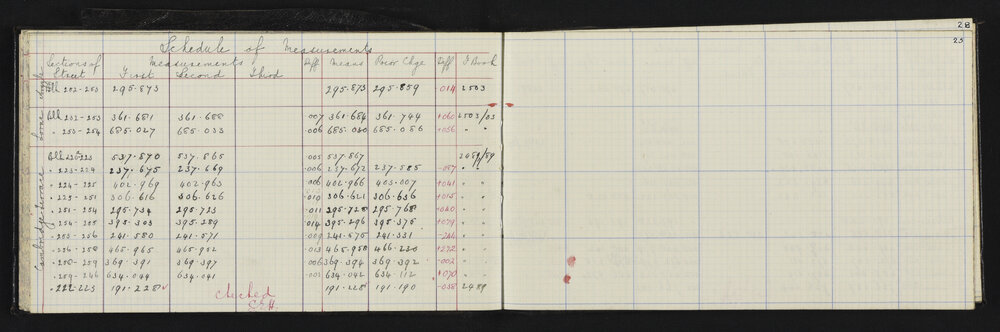 28
25
Schedule of Measurements
Sections of Street Measurements First Second Third Diff Means Prior Chge Diff F Book
252-253 295.873 295.873 295.859 .014 2503
252-253 361.681 361.688 007 361.684 361.744 +060 2503/03
" 253-254 685.027 685.033 .006 685.030 685.086 +056 " "
Cambridge Terrace
537.870 537.865 005 537.867
" 223-224 237.675 237.669 .006 237.672 237.585 -.087 " "
" 224-225 402.969 402.963 .006 402.966 403.007 +041 " "
" 225-251 306.616 306.626 .010 306.621 306.636 +015 " "
" 251-254 295.734 295.723 .011 295.728 295.768 +040 " "
395.303 395.289 .014 395.296 395.375 +079 " "
241.580 241.571 .009 241.575 241.331 " "
465.965 465.952 .013 465.958 466.230 +272 " "
" 258-259 369.391 369.397 006 369.394 369.392 -002 " "
" 259-246 634.044 634.041 .003 634.042 634.112 +070 " "
" 222-223 191.228 191.228 191.190 -038 2489
checked